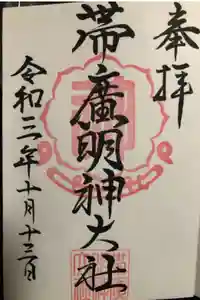 奉拝
帯廣明神大社
令和三年十月十三日